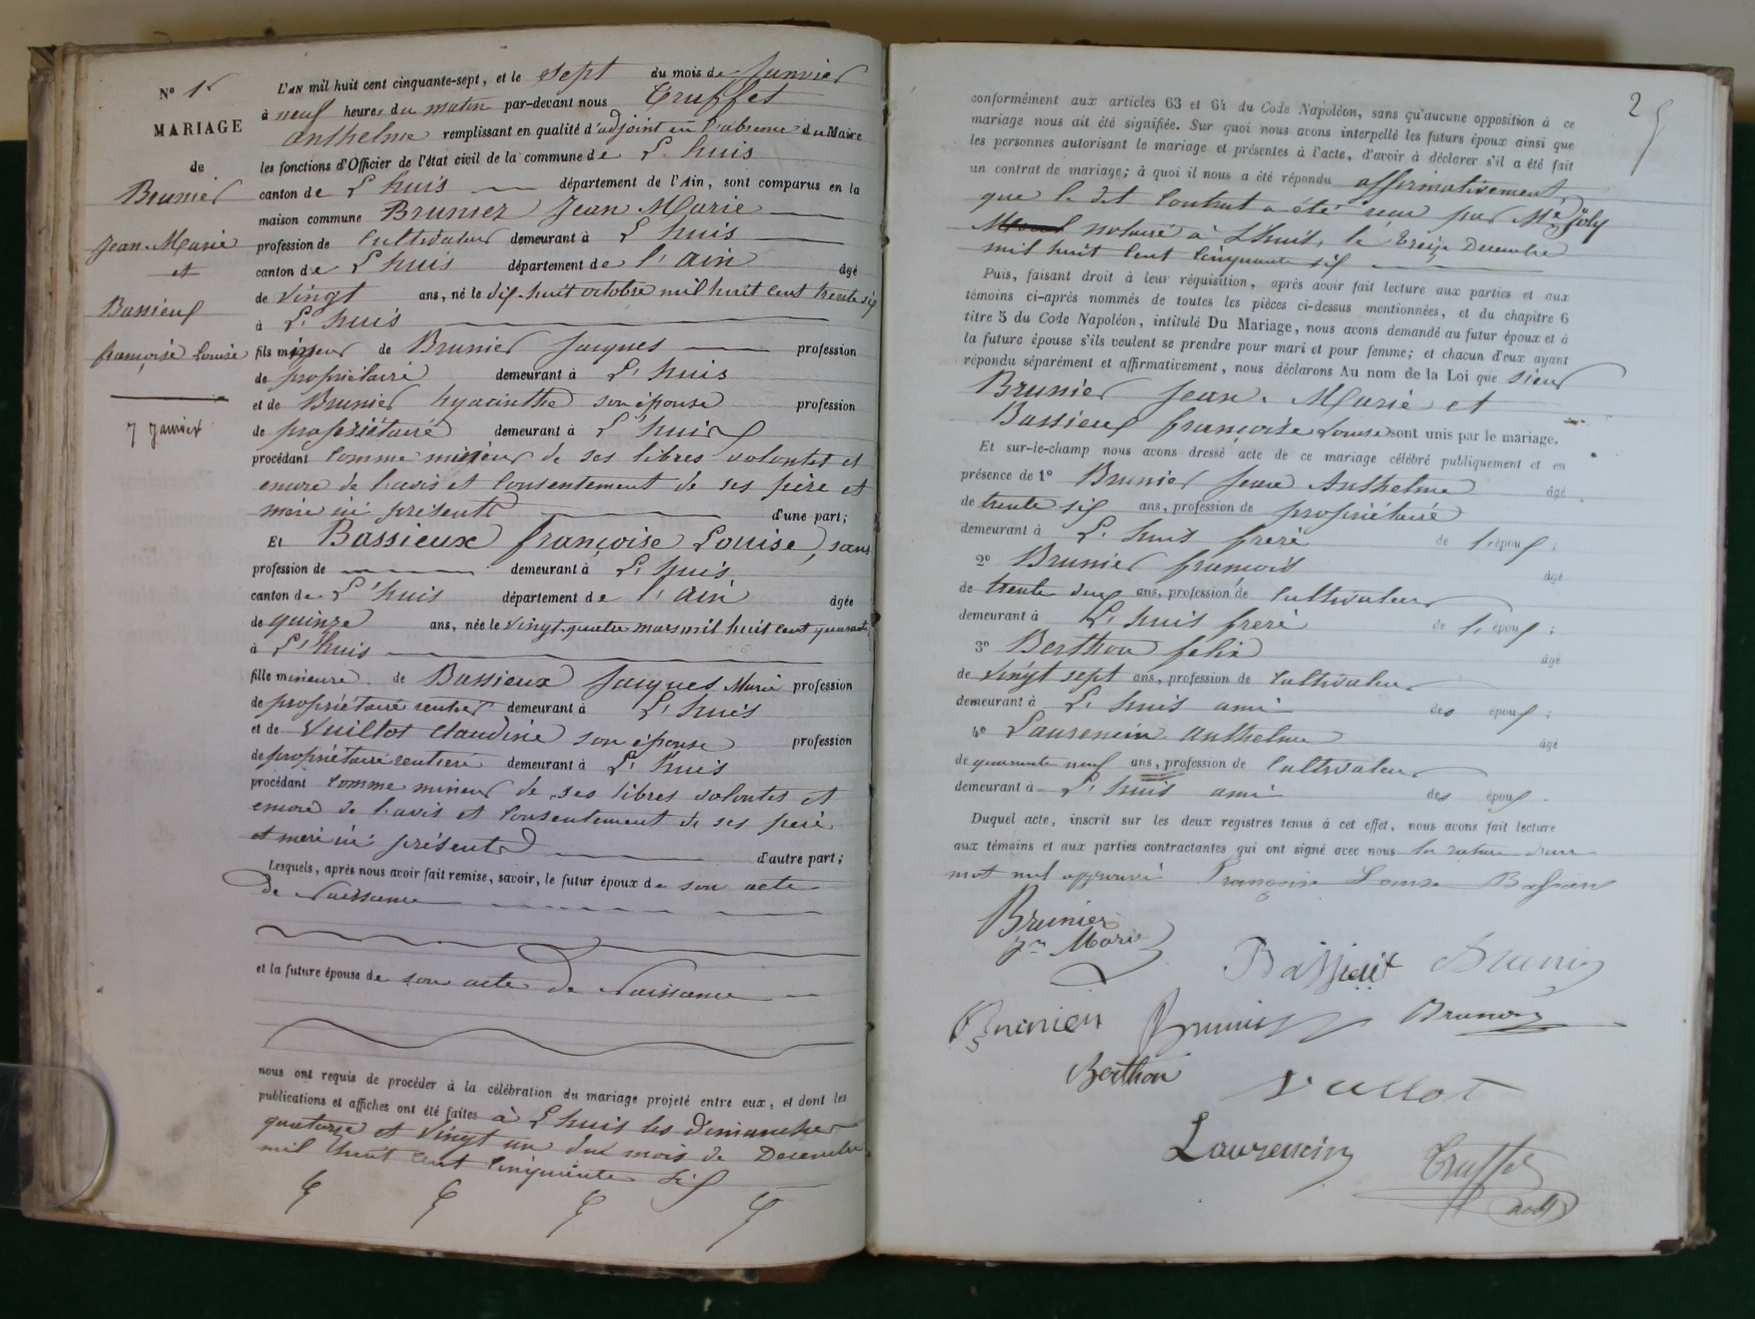 N° 1er
MARIAGE
de
Brunier
Jean Marie
et
Bassieux
françoise Louise
7 Janvier
L'AN mil huit cent cinquante-sept, et le sept du mois de Janvier
à neuf heures du matin par-devant nous Truffet
anthelme remplissant en qualité d'adjoint en l'absence du Maire
les fonctions d'Officier de l'état civil de la commune de L'huis
canton de L'huis département de l'Ain, sont comparus en la
maison commune Brunier Jean Marie
profession de Cultivateur demeurant à L'huis
canton de L'huis département de l'ain âgé
de vingt ans, né le dix-huit octobre mil huit cent trente six
à L'huis
fils mineur de Brunier Jacques profession
de propriétaire demeurant à L'huis
et de Brunier hyacinthe son épouse profession
de propriétaire demeurant à L'huis
procédant Comme mineur de ses libres volontés et
encore de l'avis et Consentement de ses père et
mère ici présents d'une part;
Et Bassieux françoise Louise, sans
profession de demeurant à L'huis
canton de L'huis département de l'ain âgée
de quinze ans, née le vingt-quatre mars mil huit cent quarante
à L'huis
fille mineure de Bassieux Jacques Marie profession
de propriétaire rentier demeurant à L'huis
et de Vuillot Claudine son épouse profession
de propriétaire rentière demeurant à L'huis
procédant Comme mineur de ses libres volontés et
encore de l'avis et Consentement de ses père
et mère ici présents d'autre part;
Lesquels, après nous avoir fait remise, savoir, le futur époux de son acte
de Naissance
et la future épouse de son acte de Naissance
nous ont requis de procéder à la célébration du mariage projeté entre eux, et dont les
publications et affiches ont été faites à L'huis les dimanches
quatorze et vingt un du mois de Decembre
mil huit cent Cinquante six
25
conformément aux articles 63 et 64 du Code Napoléon, sans qu'aucune opposition à ce
mariage nous ait été signifiée. Sur quoi nous avons interpellé les futurs époux ainsi que
les personnes autorisant le mariage et présentes à l'acte, d'avoir à déclarer s'il a été fait
un contrat de mariage; à quoi il nous a été répondu affirmativement,
que le dit Contrat a été reçu par Me Joly
notaire à Lhuis, le treize Decembre
mil huit Cent Cinquante six
Puis, faisant droit à leur réquisition, après avoir fait lecture aux parties et aux
témoins ci-après nommés de toutes les pièces ci-dessus mentionnées, et du chapitre 6
titre 5 du Code Napoléon, intitulé Du Mariage, nous avons demandé au futur époux et à
la future épouse s'ils veulent se prendre pour mari et pour femme; et chacun d'eux ayant
répondu séparément et affirmativement, nous déclarons Au nom de la Loi que sieur
Brunier Jean Marie et
Bassieux françoise Louise sont unis par le mariage.
Et sur-le-champ nous avons dressé acte de ce mariage célébré publiquement et en
présence de 1° Brunier Jean Anthelme âgé
de trente six ans, profession de propriétaire
demeurant à L'huis frère de l'époux;
2° Brunier francois âgé
de trente deux ans, profession de Cultivateur
demeurant à L'huis frère de l'époux;
3° Berthon felix âgé
de vingt sept ans, profession de Cultivateur
demeurant à L'huis ami des époux;
4° Laurencin anthelme âgé
de quarante neuf ans, profession de Cultivateur
demeurant à L'huis ami des époux.
Duquel acte, inscrit sur les deux registres tenus à cet effet, nous avons fait lecture
aux témoins et aux parties contractantes qui ont signé avec nous la rature d'un
mot nul approuvé Françoise Louise Bassieux
Brunier
Jn Marie
Bassieux Brunier
Brunier Brunier Brunier
Berthon Vuillot
Laurencin Truffet
adjt